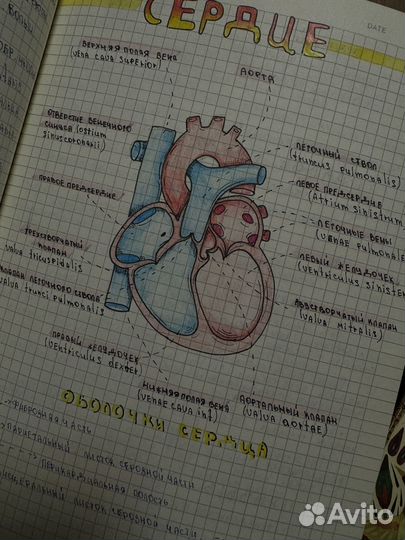 СЕРДЦЕ
DATE
ВЕРХНЯЯ ПОЛАЯ ВЕНА
(VENA CAVA SUPERIOR)
АОРТА
ОТВЕРСТИЕ ВЕНЕЧНОГО
СИНУСА (OSTIUM
SINUSCORONARII)
ЛЕГОЧНЫЙ СТВОЛ
(TRUNCUS PULMONALIS)
ПРАВОЕ ПРЕДСЕРДИЕ
ЛЕВОЕ ПРЕДСЕРДИЕ
(ATRIUM SINISTRUM
ЛЕГОЧНЫЕ ВЕНЫ
(VENAE PULMONAL
ТРЕХСТВОРЧАТЫЙ
КЛАПАН
VALVA TRICUSPIDALIS
ЛЕВЫЙ ЖЕЛУДОЧЕК
(VENTRICULUS SINISTER
КЛАПАН ЛЕГОЧНОГО СТВОЛА
(VALVA TRUNCI PULMONALIS)
ДВУСТВОРЧАТЫЙ КЛАПАН
(VALVA MITRALIS)
ПРАВЫЙ ЖЕЛУДОЧЕК
(VENTRICULUS DEXTER)
НИЖНЯЯ ПОЛАЯ ВЕНА
(VENAE CAVA INF)
АОРТАЛЬНЫЙ КЛАПАН
(VALVA AORTAE)
ОБОЛОЧКИ СЕРДЦА
ФИБРОЗНАЯ ЧАСТЬ
ПАРИЕТАЛЬНЫЙ ЛИСТОК СЕРОЗНОЙ ЧАСТИ
ПЕРИКАРДИАЛЬНАЯ ПОЛОСТЬ
ВИСЦЕРАЛЬНЫЙ ЛИСТОК СЕРОЗНОЙ ЧАСТИ
Avito